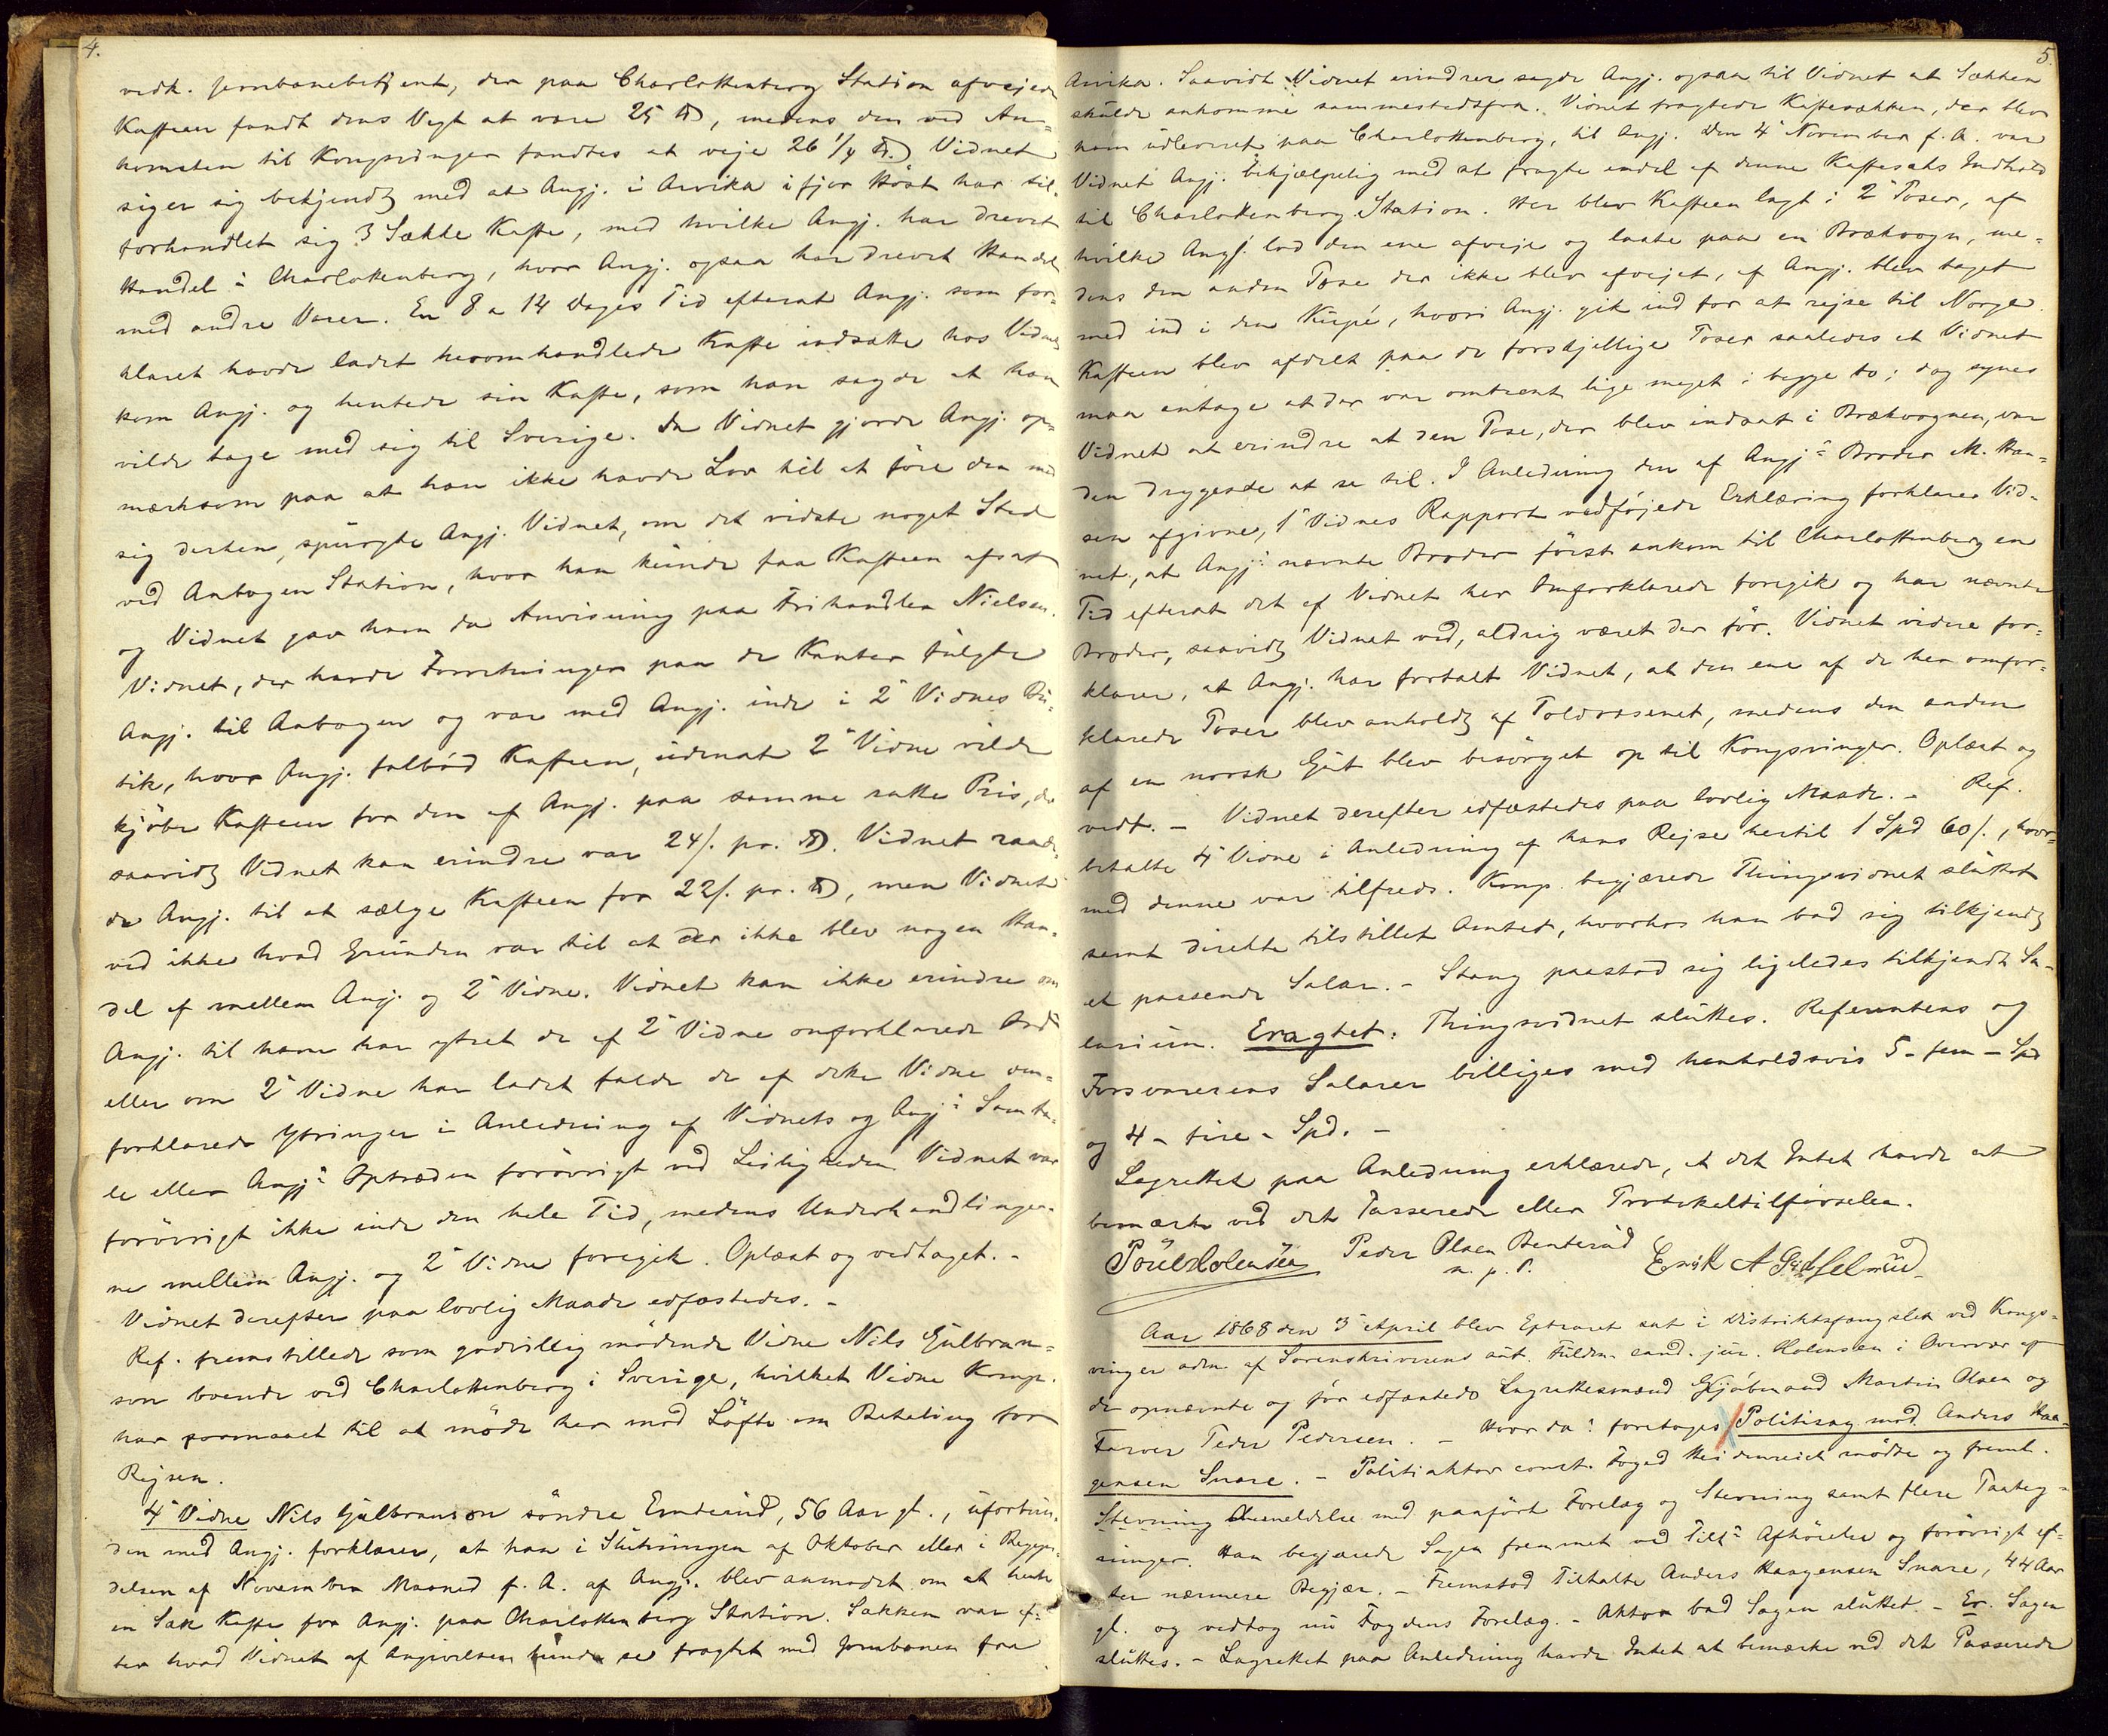 4.
vedk. Jernbanebetjent, der paa Charlottenberg Station afvejede
Kaffeen fandt dens Vegt at være 25 ℔, medens den ved An=
komsten til Kongsvinger fandtes at veje 26 1/4 ℔.) Vidnet
siger sig bekjendt med at Angj. i Arvika ifjor Høst har til-
forhandlet sig 3 Sække Kaffe, med hvilke Angj. har drevet
Handel i Charlottenberg, hvor Angj. ogsaa har drevet Handel
med andre Varer. En 8 a 14 Dages Tid efterat Angj. som for-
klaret havde ladet heromhandlede Kaffe indsætte hos Vidnet
kom Angj. og hentede sin Kaffe, som han sagde at han
vilde tage med sig til Sverige. Da Vidnet gjorde Angj. op-
mærksom paa at han ikke havde Lov til at føre den med
sig derhen, spurgte Angj. Vidnet, om det vidste noget Sted
ved Aabogen Station, hvor han kunde faa Kaffeen afsat
og Vidnet gav ham da Anvisning paa Frihandler Nielsen.
Vidnet, der havde Forretninger paa de Kanter fulgte
Angj. til Aabogen og var med Angj. inde i 2det Vidnes Bu-
tik, hvor Angj. falbød Kaffeen, uden at 2det Vidne vilde
kjøbe Kaffeen for den af Angj. paa samme satte Pris, der
saavidt Vidnet kan erindre var 24/. pr. ℔. Vidnet raade-
de Angj. til at sælge Kaffeen for 22/. pr. ℔, men Vidnet
ved ikke hvad Grunden var til at der ikke blev nogen Han-
del af mellem Angj. og 2det Vidne. Vidnet kan ikke erindre om
Angj. til ham har ytret de af 2det Vidne omforklarede Ord
eller om 2det Vidne har ladet falde de af dette Vidne om-
forklarede Ytringer i Anledning af Vidnets og Angj.s Samta-
le eller Angj.s Optræden forøvrigt ved Leiligheden. Vidnet var
forøvrigt ikke inde den hele Tid, medens Underhandlinger-
ne mellem Angj. og 2det Vidne foregik. Oplæst og vedtaget. -
Vidnet derefter paa lovlig Maade edfæstedes. -
Ref. fremstillede som godvillig mødende Vidne Nils Gulbran=
son boende ved Charlottenberg i Sverige, hvilket Vidne Komp.
har formaaet til at møde her mod Løfte om Betaling for
Rejsen.
4de Vidne Nils Gulbranson søndre Emterud, 56 Aar gl., uforbun-
den med Angj. forklarer, at han i Slutningen af Oktober eller i Begyn-
delsen af November Maaned f. A. af Angj. blev anmodet om at hente
en Sæk Kaffe for Angj. paa Charlottenberg Station. Sækken var ef-
ter hvad Vidnet af Angivelsen kunde se fragtet med Jernbanen fra
5.
Arvika. Saavidt Vidnet erindrer sagde Angj. ogsaa til Vidnet at Sækken
skulde ankomme sammestedsfra. Vidnet fragtede Kaffesækken, der blev
ham udleveret paa Charlottenberg, til Angj. Den 4de November f. A. var
Vidnet Angj. behjælpelig med at fragte endel af denne Kaffesæks Indhold
til Charlottenberg Station. Her blev Kaffeen lagt i 2de Poser, af
hvilke Angj. lod den ene afveje og laste paa en Brækvogn, me-
dens den anden Pose der ikke blev afvejet, af Angj. blev taget
med ind i den Kupé, hvori Angj. gik ind for at rejse til Norge.
Kaffeen blev afdelt paa de forskjellige Poser saaledes at Vidnet
maa antage at der var omtrent lige meget i begge to; dog synes
Vidnet at erindre at den Pose, der blev indsat i Brækvognen, var
den drygeste at se til. I Anledning den af Angj.s Broder M. Han=
sen afgivne, 1ste Vidnes Rapport vedføjede Erklæring forklarer Vid-
net, at Angj.s nævnte Broder først ankom til Charlottenberg en
Tid efterat det af Vidnet her Omforklarede foregik og har nævnte
Broder, saavidt Vidnet ved, aldrig været der før. Vidnet videre for-
klarer, at Angj. har fortalt Vidnet, at den ene af de her omfor-
klarede Poser blev anholdt af Toldvæsenet, medens den anden
af en norsk Gut blev besørget op til Kongsvinger. Oplæst og
vedt. - Vidnet derefter edfæstedes paa lovlig Maade. - Ref.
betalte 4de Vidne i Anledning af hans Rejse hertil 1 Spd 60/., hvor-
med denne var tilfreds. Komp. begjærede Thingsvidnet sluttet
samt direkte tilstillet Amtet, hvorhos han bad sig tilkjendt
et passende Salar. - Stang paastod sig ligeledes tilkjendt Sa-
larium. Eragtet: Thingsvidnet sluttes. Referentens og
Forsvarerens Salarer billiges med henholdsvis 5 - fem - Spd
og 4 - fire - Spd. -
Lagrettet paa Anledning erklærede, at det Intet havde at
bemærke ved det Passerede eller Protokoltilførselen.
Poul Holensen Peder Olsen Benterud
m. p. P.
Aar 1868 den 3die April blev Extraret sat i Distriktsfængslet ved Kongs-
vinger adm. af Sorenskriverens aut. Fuldm. cand. jur. Holensen i Overvær af
de opnævnte og før edfæstede Lagrettesmænd Gjøbmand Martin Olsen og
Farver Peder Pedersen. - Hvor da: foretoges Politisag mod Anders Haa-
gensen Snare. - Politiaktor const. Foged Heidenreich mødte og freml.
Stevning Anmeldelse med paaført Forelæg og Stevning samt flere Paateg-
ninger. Han begjærede Sagen fremmet ved Tilt.s Afhørelse og forøvrigt ef-
ter nærmere Begjær. - Fremstod Tiltalte Anders Haagensen Snare, 44 Aar
gl. og vedtog nu Fogdens Forelæg. - Aktor bad Sagen sluttet. - Er. Sagen
sluttes. - Lagrettet paa Anledning havde Intet at bemærke ved det Passerede